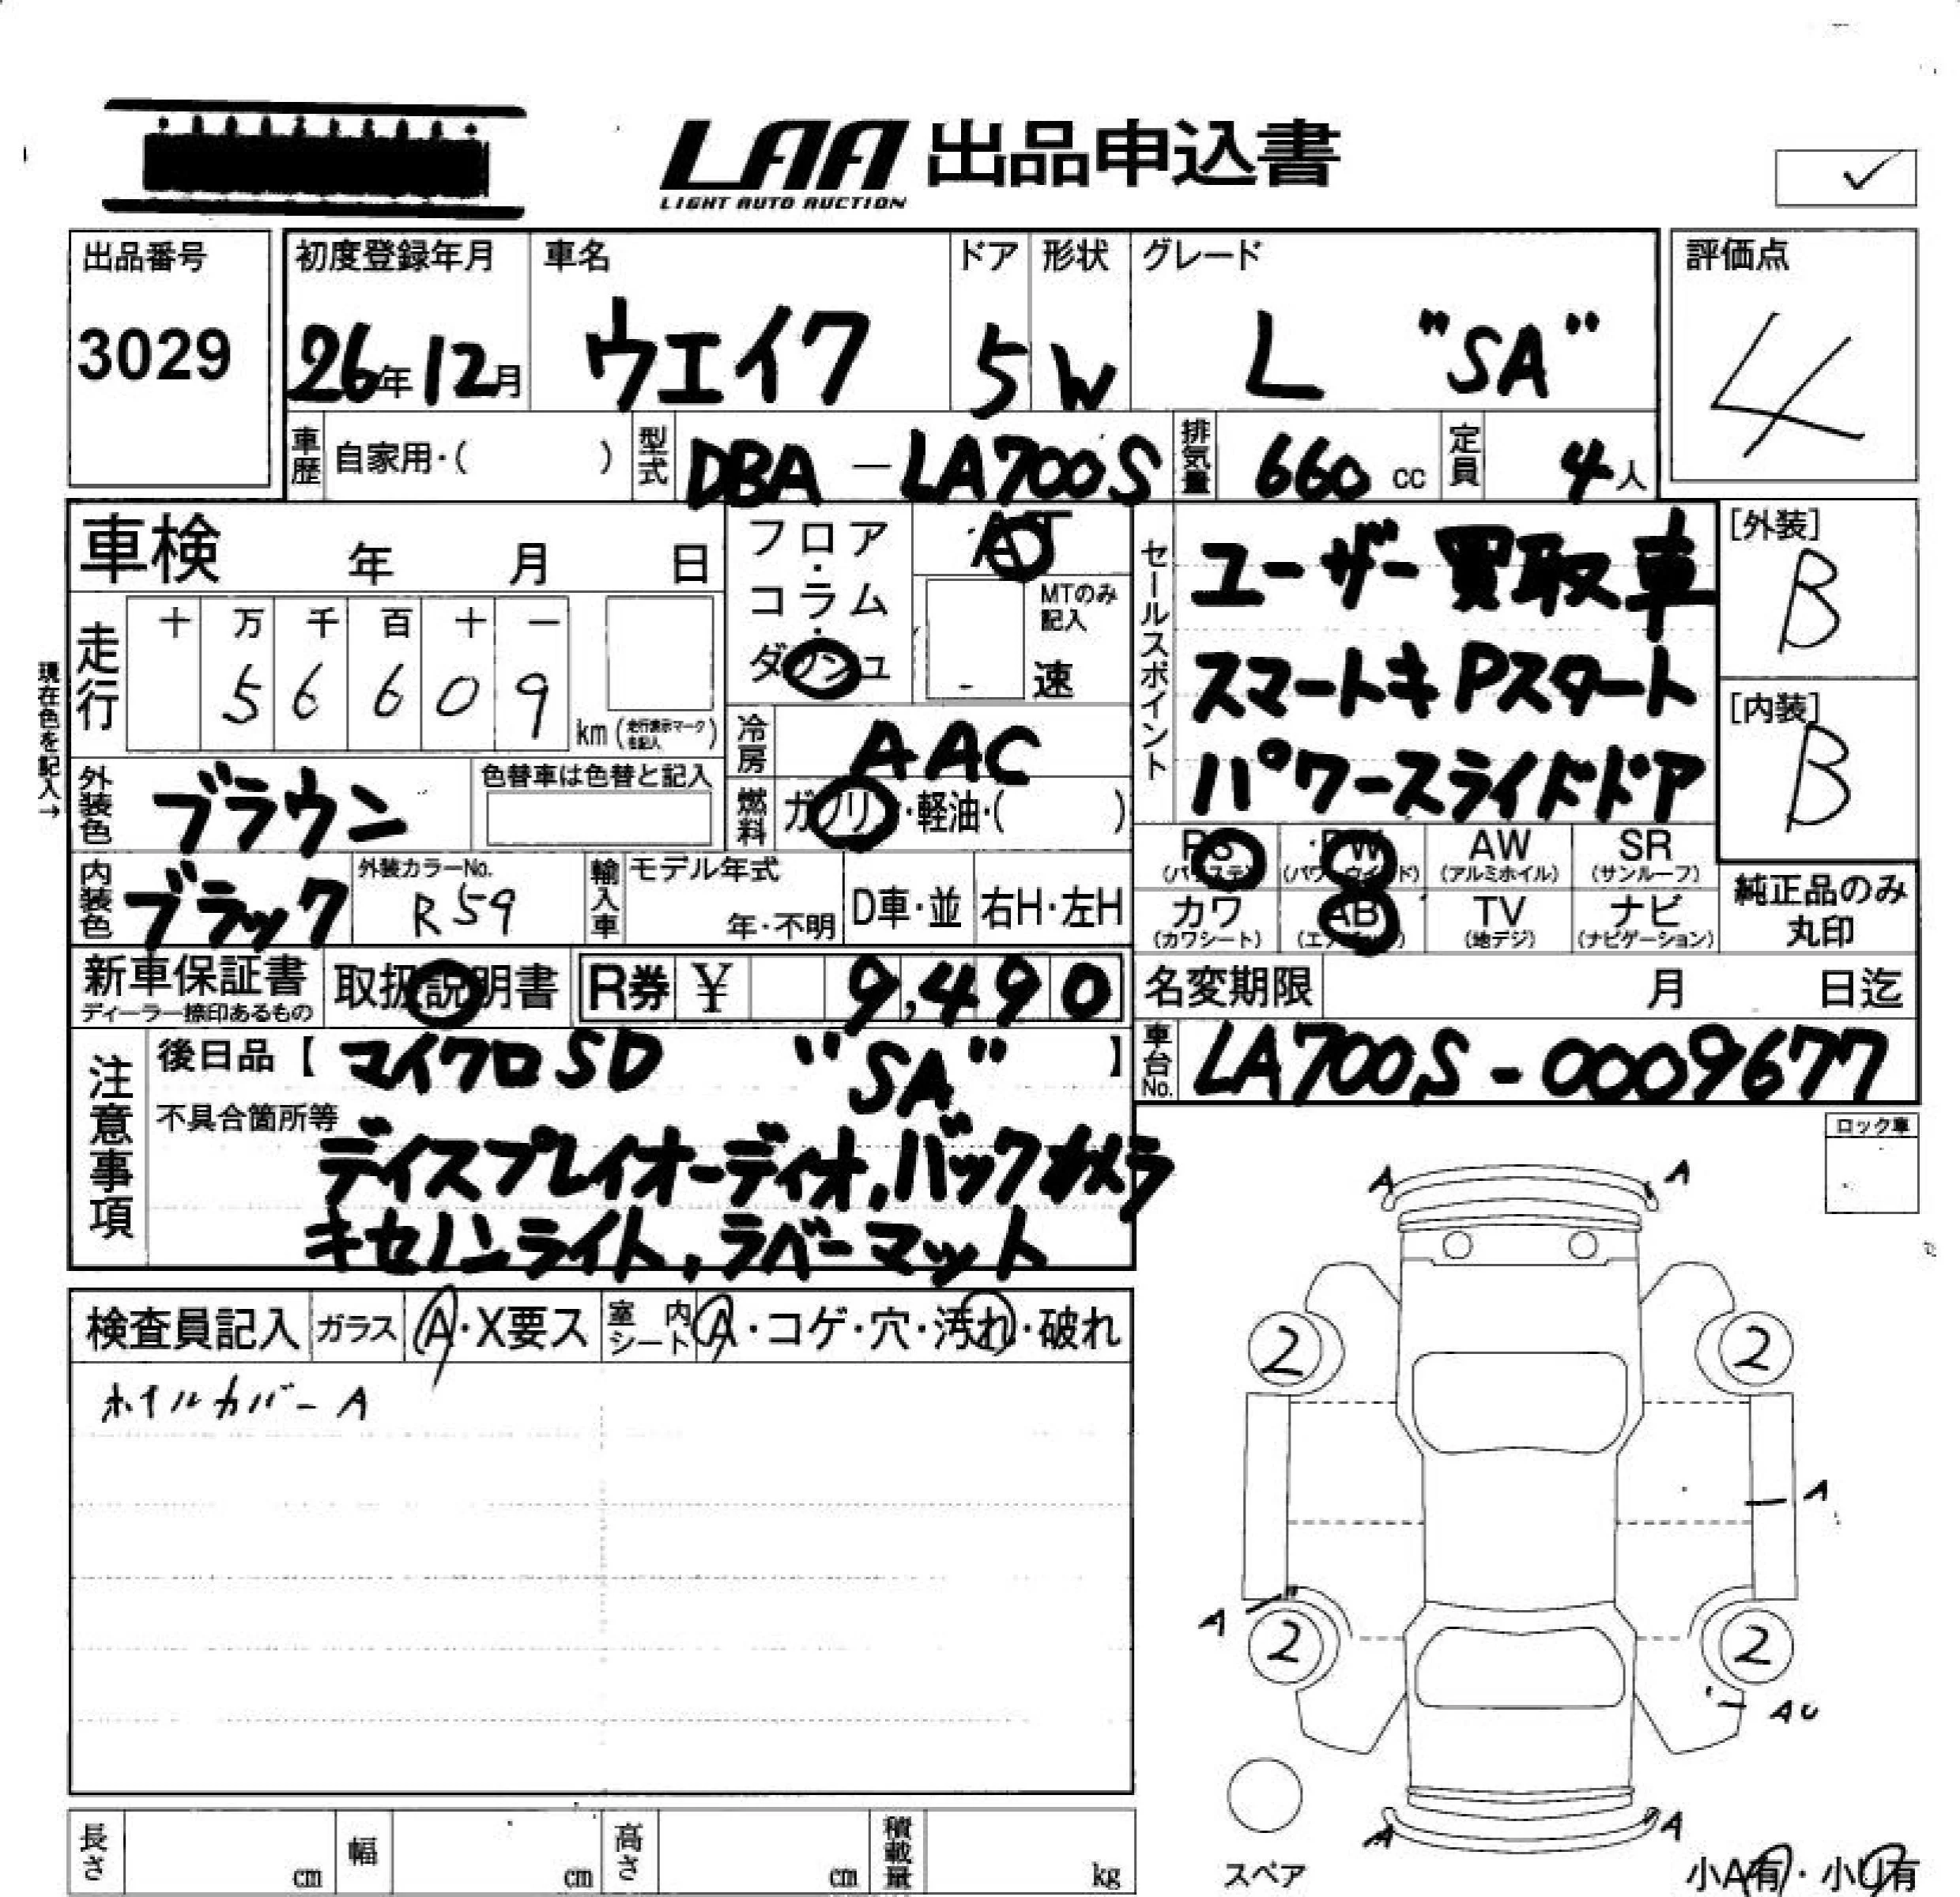 LAA 出品申込書
LIGHT AUTO AUCTION
✓
出品番号
3029
初度登録年月
26年12月
車名
ウエイク
ドア
5
形状
W
グレード
L "SA"
評価点
4
車歴
自家用・( )
型式
DBA-LA700S
排気量
660 cc
定員
4人
車検 年 月 日
フロア・コラム・ダッシュ
AT
MTのみ記入
速
セールスポイント
ユーザー買取車
スマートキ Pスタート
パワースライドドア
[外装]
B
[内装]
B
現在色を記入→
走行
十 万 千 百 十 一
5 6 6 0 9
km (走行表示マークを記入)
冷房
AAC
外装色
ブラウン
色替車は色替と記入
燃料
ガソリン・軽油・( )
PS PW AW SR
(パワステ) (パワーウインド) (アルミホイル) (サンルーフ)
カワ AB TV ナビ
(カワシート) (エアバッグ) (地デジ) (ナビゲーション)
純正品のみ丸印
内装色
ブラック
外装カラーNo.
R59
輸入車
モデル年式
年・不明
D車・並
右H・左H
新車保証書
ディーラー捺印あるもの
取扱説明書
R券 ¥ 9,490
名変期限 月 日迄
注意事項
後日品【 マイクロSD "SA" 】
車台No.
LA700S-0009677
不具合箇所等
ディスプレイオーディオ,バックカメラ
キセノンライト,ラバーマット
ロック車
検査員記入
ガラス
A・X要ス
室内シート
A・コゲ・穴・汚れ・破れ
ホイルカバーA
A A
2 2
A
A
2 2
AU
A A
スペア
小A有・小U有
長さ cm
幅 cm
高さ cm
積載量 kg